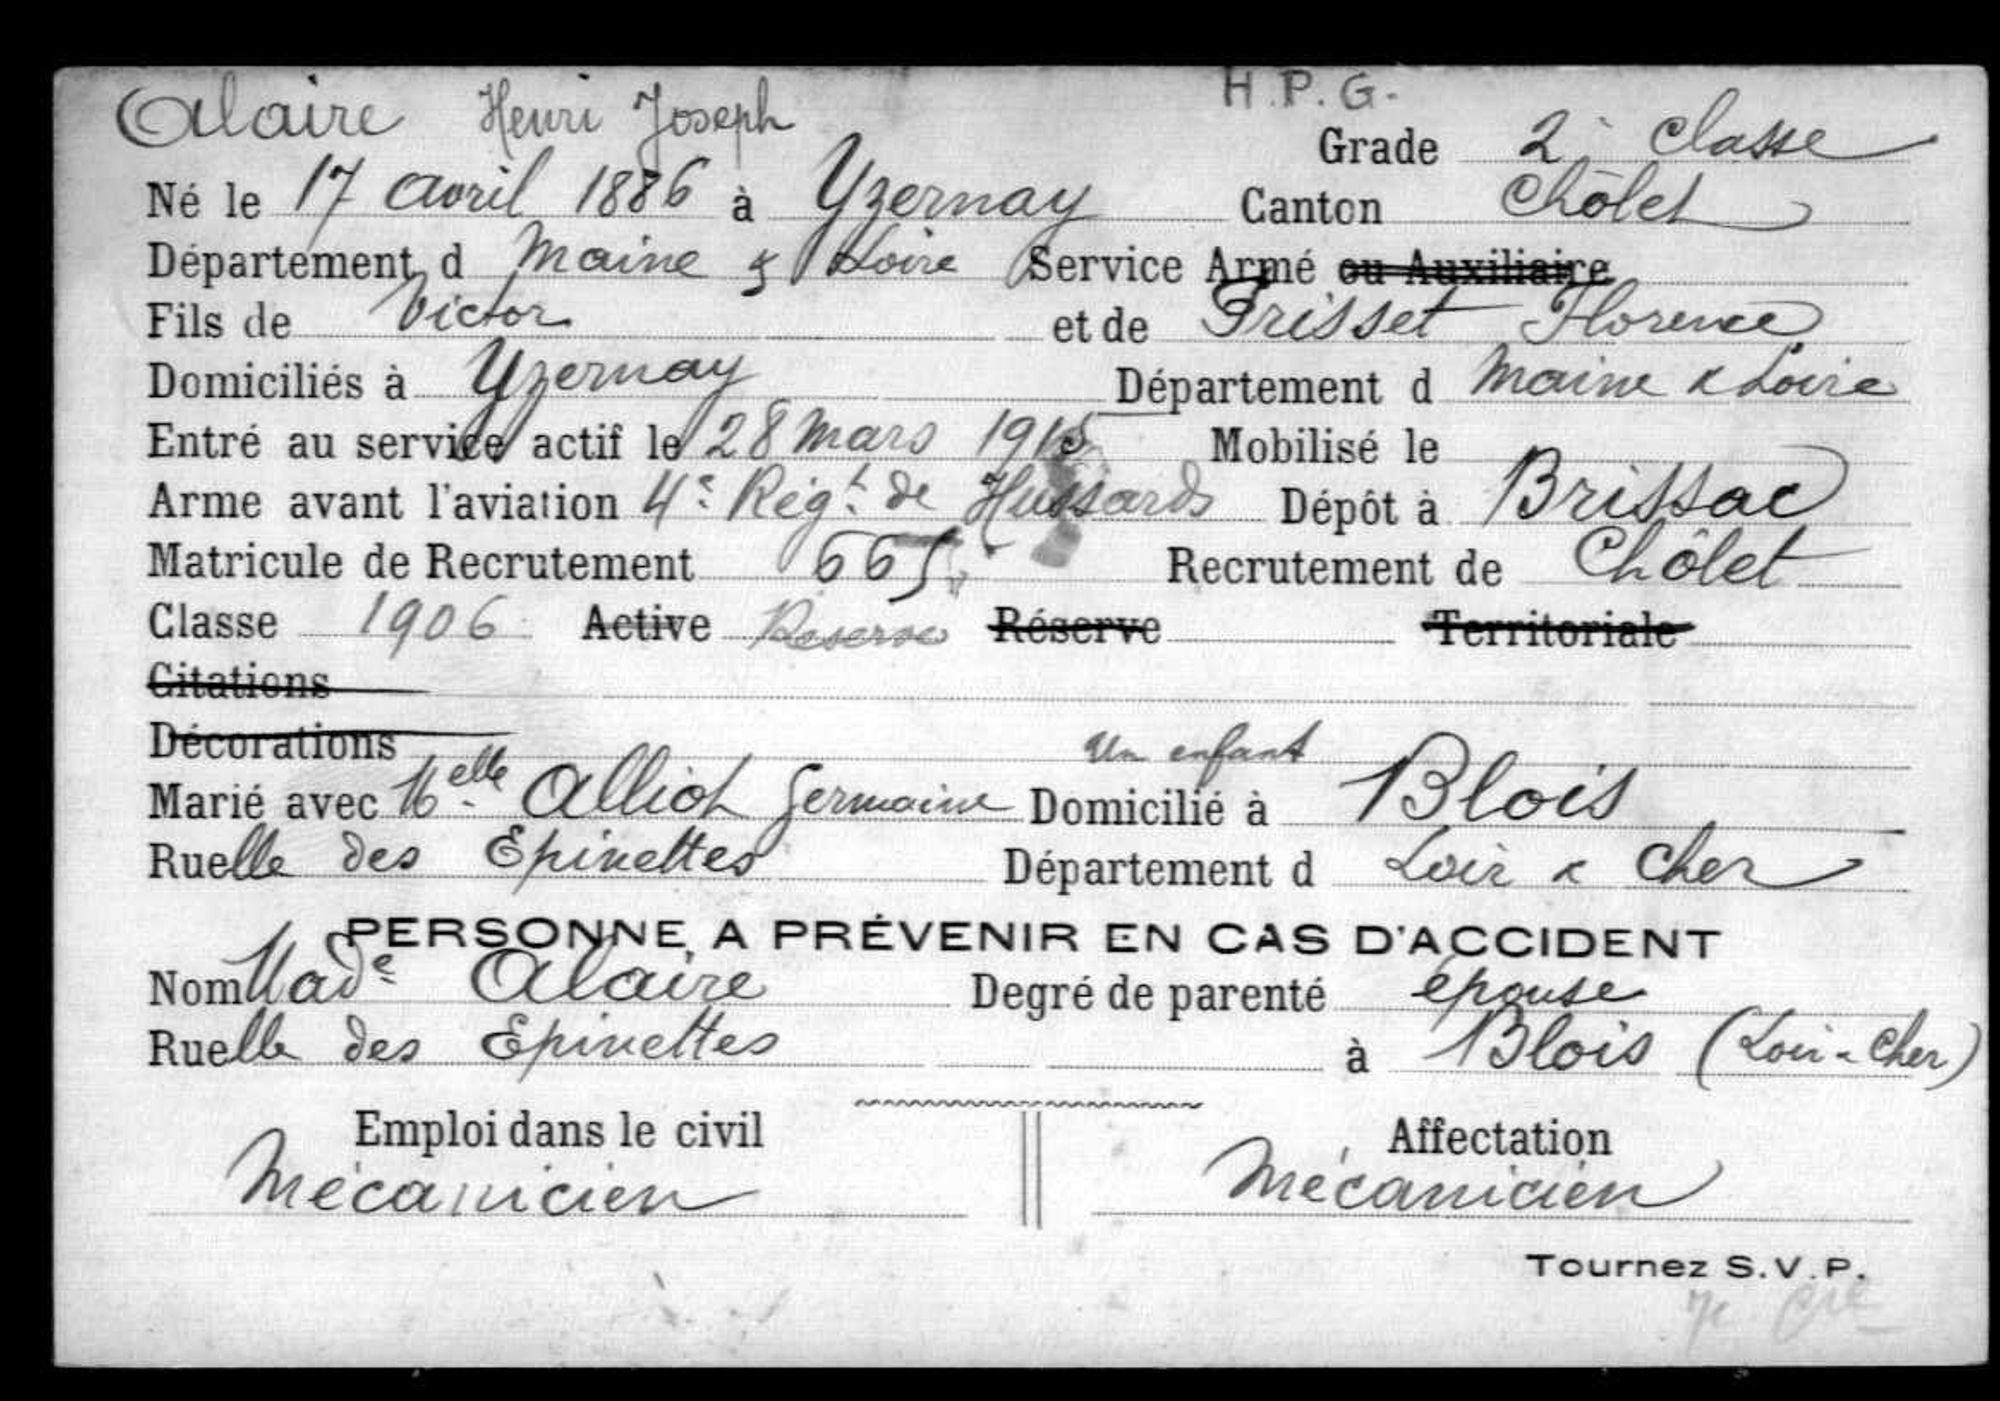 Alaire Henri Joseph H.P.G.
Grade 2e Classe
Né le 17 avril 1886 à Yzernay Canton Chôlet
Département d Maine & Loire Service Armé ou Auxiliaire
Fils de Victor et de Frisset Florence
Domiciliés à Yzernay Département d Maine & Loire
Entré au service actif le 28 Mars 1915 Mobilisé le
Arme avant l'aviation 4e Régt de Hussards Dépôt à Brissac
Matricule de Recrutement 665 Recrutement de Chôlet
Classe 1906 Active Réserve Réserve Territoriale
Citations
Décorations Un enfant
Marié avec Melle Alliot Germaine Domicilié à Blois
Ruelle des Epinettes Département d Loir & Cher
PERSONNE A PRÉVENIR EN CAS D'ACCIDENT
Nom Made Alaire Degré de parenté épouse
Ruelle des Epinettes à Blois (Loir & Cher)
Emploi dans le civil Affectation
Mécanicien Mécanicien
Tournez S.V.P.